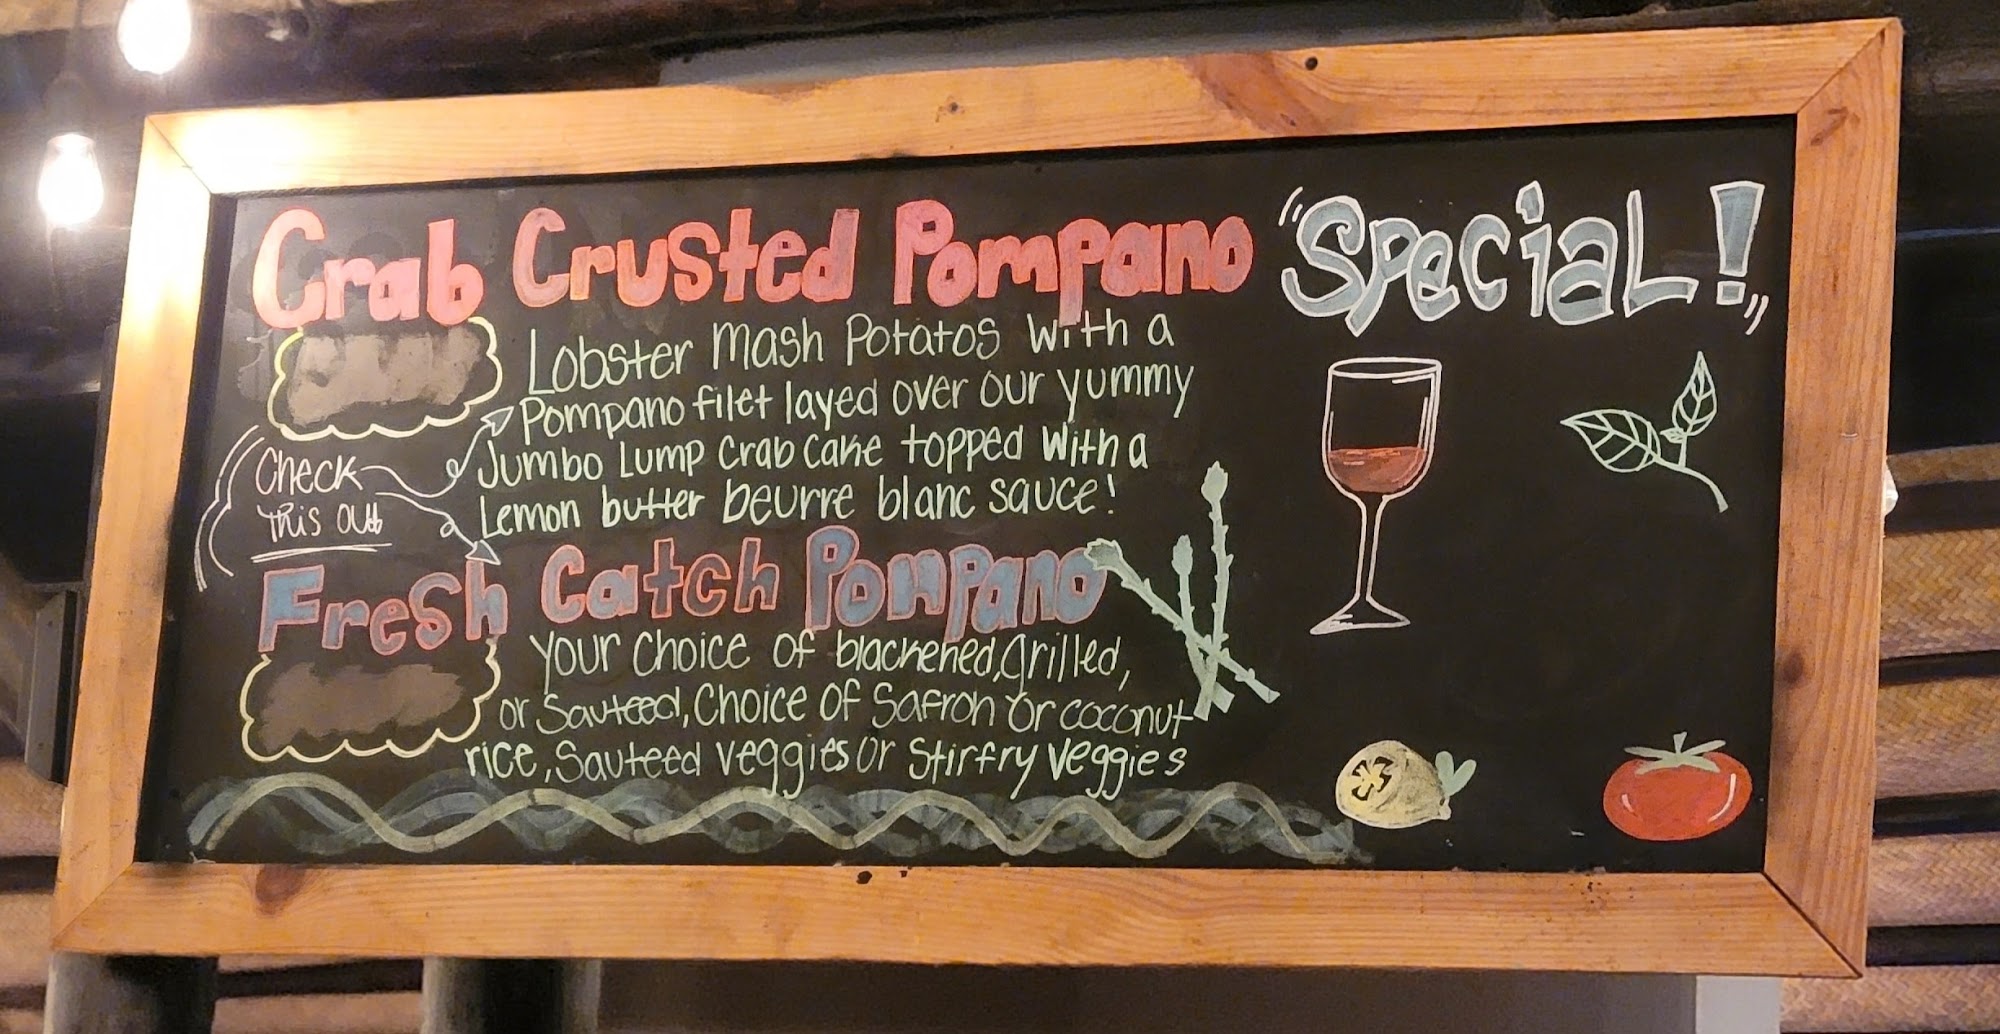 Crab Crusted Pompano "Special!"
Lobster Mash Potatos with a
Pompano filet layed over our yummy
Jumbo Lump Crab Cake topped with a
Lemon butter beurre blanc sauce!
Check
this out
Fresh Catch Pompano
Your choice of blackened, grilled,
or Sauteed, Choice of Safron or coconut
rice, Sauteed veggies or Stirfry veggies